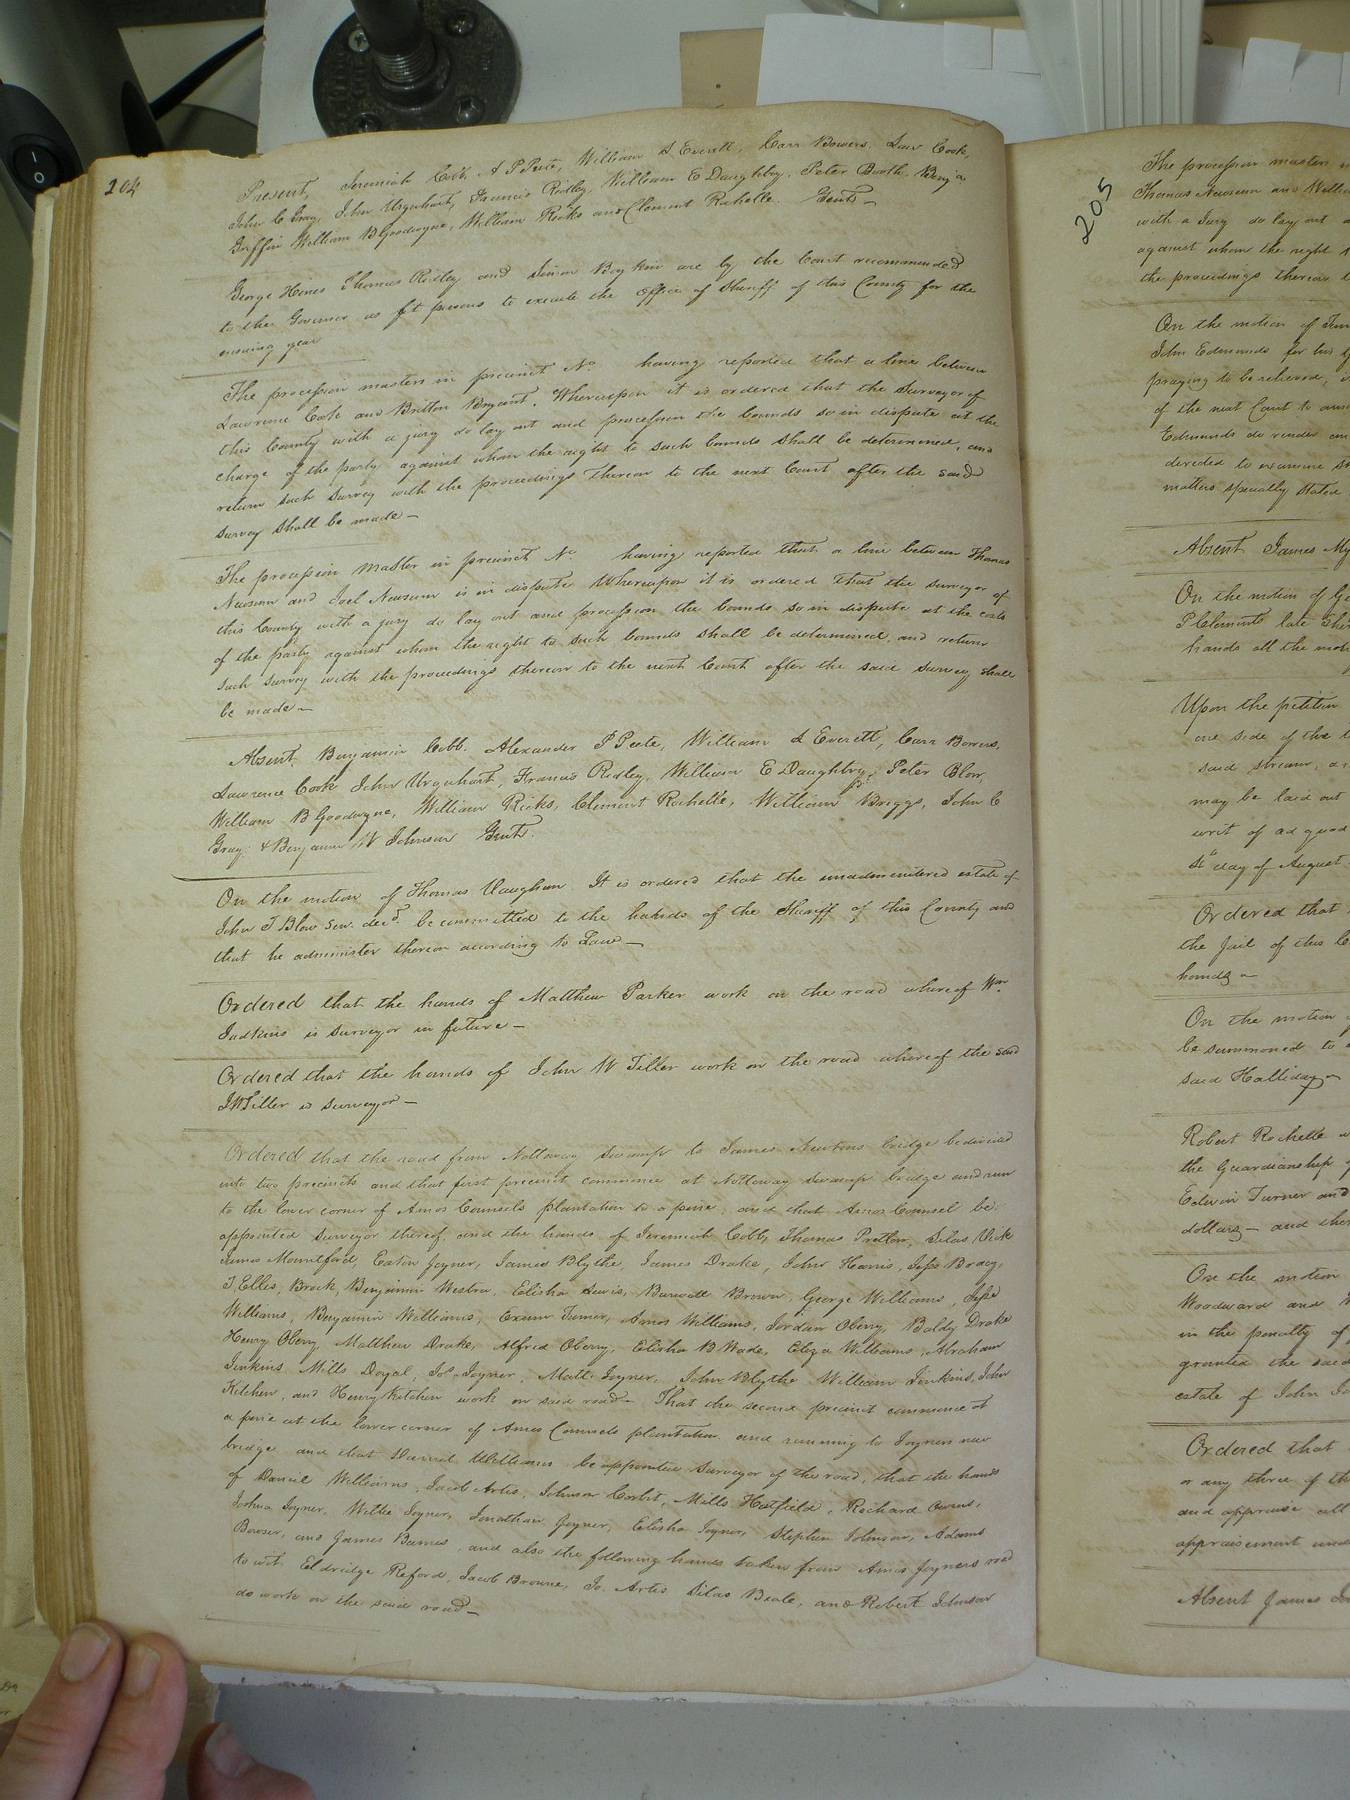 204
Present, Jeremiah Cobb, A P Peete, William S Everett, Carr Bowers, Law Cook,
John C Gray, John Urquhart, Francis Ridley, William E Daughtry, Peter Booth, Benja
Griffin William B Goodwyne, William Ricks and Clement Rochelle. Gents—
George Hines Thomas Ridley and Simon Boykin are by the Court recommended
to the Governor as fit persons to execute the office of Sheriff of this County for the
ensuing year
The procession masters in precinct No having reported that a line between
Lawrence Cook and Britton Bryant. Whereupon it is ordered that the Surveyor of
this County with a jury do lay out and procession the bounds so in dispute at the
charge of the party against whom the right to such bounds shall be determined, and
return such survey with the proceedings thereon to the next Court after the said
survey shall be made—
The procession master in precinct No having reported that a line between Thomas
Newsum and Joel Newsum is in dispute Whereupon it is ordered that the surveyor of
this County with a jury do lay out and procession the bounds so in dispute at the costs
of the party against whom the right to such bounds shall be determined, and return
such survey with the proceedings thereon to the next Court after the said survey shall
be made—
Absent, Benjamin Cobb, Alexander P Peete, William S Everett, Carr Bowers,
Lawrence Cook John Urquhart, Francis Ridley, William E Daughtry, Peter Blow,
William B Goodwyne, William Ricks, Clement Rochelle, William Briggs, John C
Gray, & Benjamin W Johnson Gents.
On the motion of Thomas Vaughan. It is ordered that the unadministered estate of
John T Blow Sen. decd. be committed to the hands of the Sheriff of this County and
that he administer thereon according to Law—
Ordered that the hands of Matthew Parker work on the road whereof Wm.
Judkins is surveyor in future—
Ordered that the hands of John W Tiller work on the road whereof the said
J W Tiller is surveyor—
Ordered that the road from Nottoway swamp to James Newtons bridge be divided
into two precincts and that first precinct commence at Nottoway swamp bridge and run
to the lower corner of Amos Counsels plantation to a pine, and that Amos Counsel be
appointed surveyor thereof, and the hands of Jeremiah Cobb, Thomas Pretlow, Silas Vick
James Mountford, Eaton Joyner, James Blythe, James Drake, John Harris, Jesse Bracy,
J. Elles, Brock, Benjamin Westra, Elisha Lewis, Burwell Brown, George Williams, Jesse
Williams, Benjamin Williams, Exum Turner, Amos Williams, Jordan Oberry, Baldy Drake
Henry Oberry, Matthew Drake, Alfred Oberry, Elisha B Wade, Eliza Williams, Abraham
Jenkins Mills Doyal, Jos. Joyner, Matt. Joyner, John Blythe William Jenkins, John
Kitchen, and Henry Kitchen work on said road— That the second precinct commence at
a pine at the lower corner of Amos Counsels plantation and running to Joyners new
bridge and that Daniel Williams be appointed surveyor of the road, that the hands
of Daniel Williams, Jacob Artis, Johnson Corbit, Mills Hatfield, Richard Owens,
Joshua Joyner, Willie Joyner, Jonathan Joyner, Elisha Joyner, Stephen Johnson, Adams
Bowser, and James Barnes, and also the following hands taken from Amos Joyners road
to wit. Eldridge Reford, Jacob Browne, Jo. Artis Silas Beale, and Robert Johnson
do work on the said road—
205
The procession masters
Thomas Newsum and Willia
with a Jury do lay out
against whom the right
the proceedings thereon
On the motion of
John Edmunds for his
praying to be relieved,
of the next Court to
Edmunds do render
dered to examine
matters specially stated
Absent James
On the motion of
P Clements late
hands all the
Upon the petition
one side of the
said stream,
may be laid out
writ of ad quod
day of August
Ordered that
the Jail of this
hands—
On the motion
be summoned to
said Halliday—
Robert Rochelle
the Guardianship
Edwin Turner and
dollars— and
On the motion
Woodward and
in the penalty of
granted the said
estate of John
Ordered that
or any three of
and appraise all
appraisement
Absent James